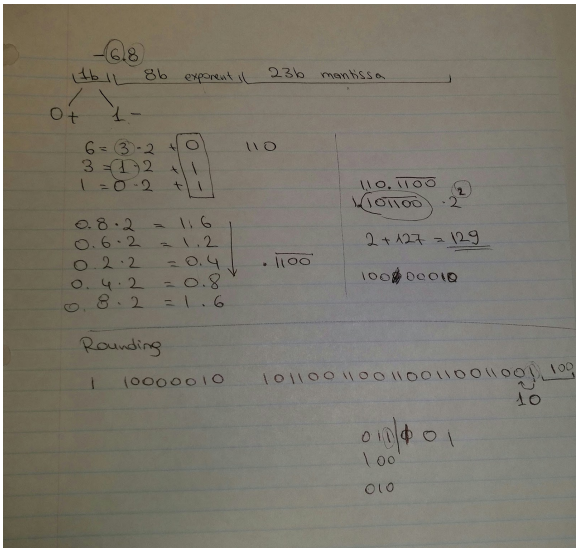 -6.8
1b 8b exponent 23b mantissa
0+ 1-
6 = 3 · 2 + 0 110
3 = 1 · 2 + 1
1 = 0 · 2 + 1
0.8 · 2 = 1.6
0.6 · 2 = 1.2
0.2 · 2 = 0.4
0.4 · 2 = 0.8
0.8 · 2 = 1.6
.1100
110.1100
1.101100 · 2 2
2 + 127 = 129
Rounding
1 10000010 10110011001100110011001 100
10
100
010